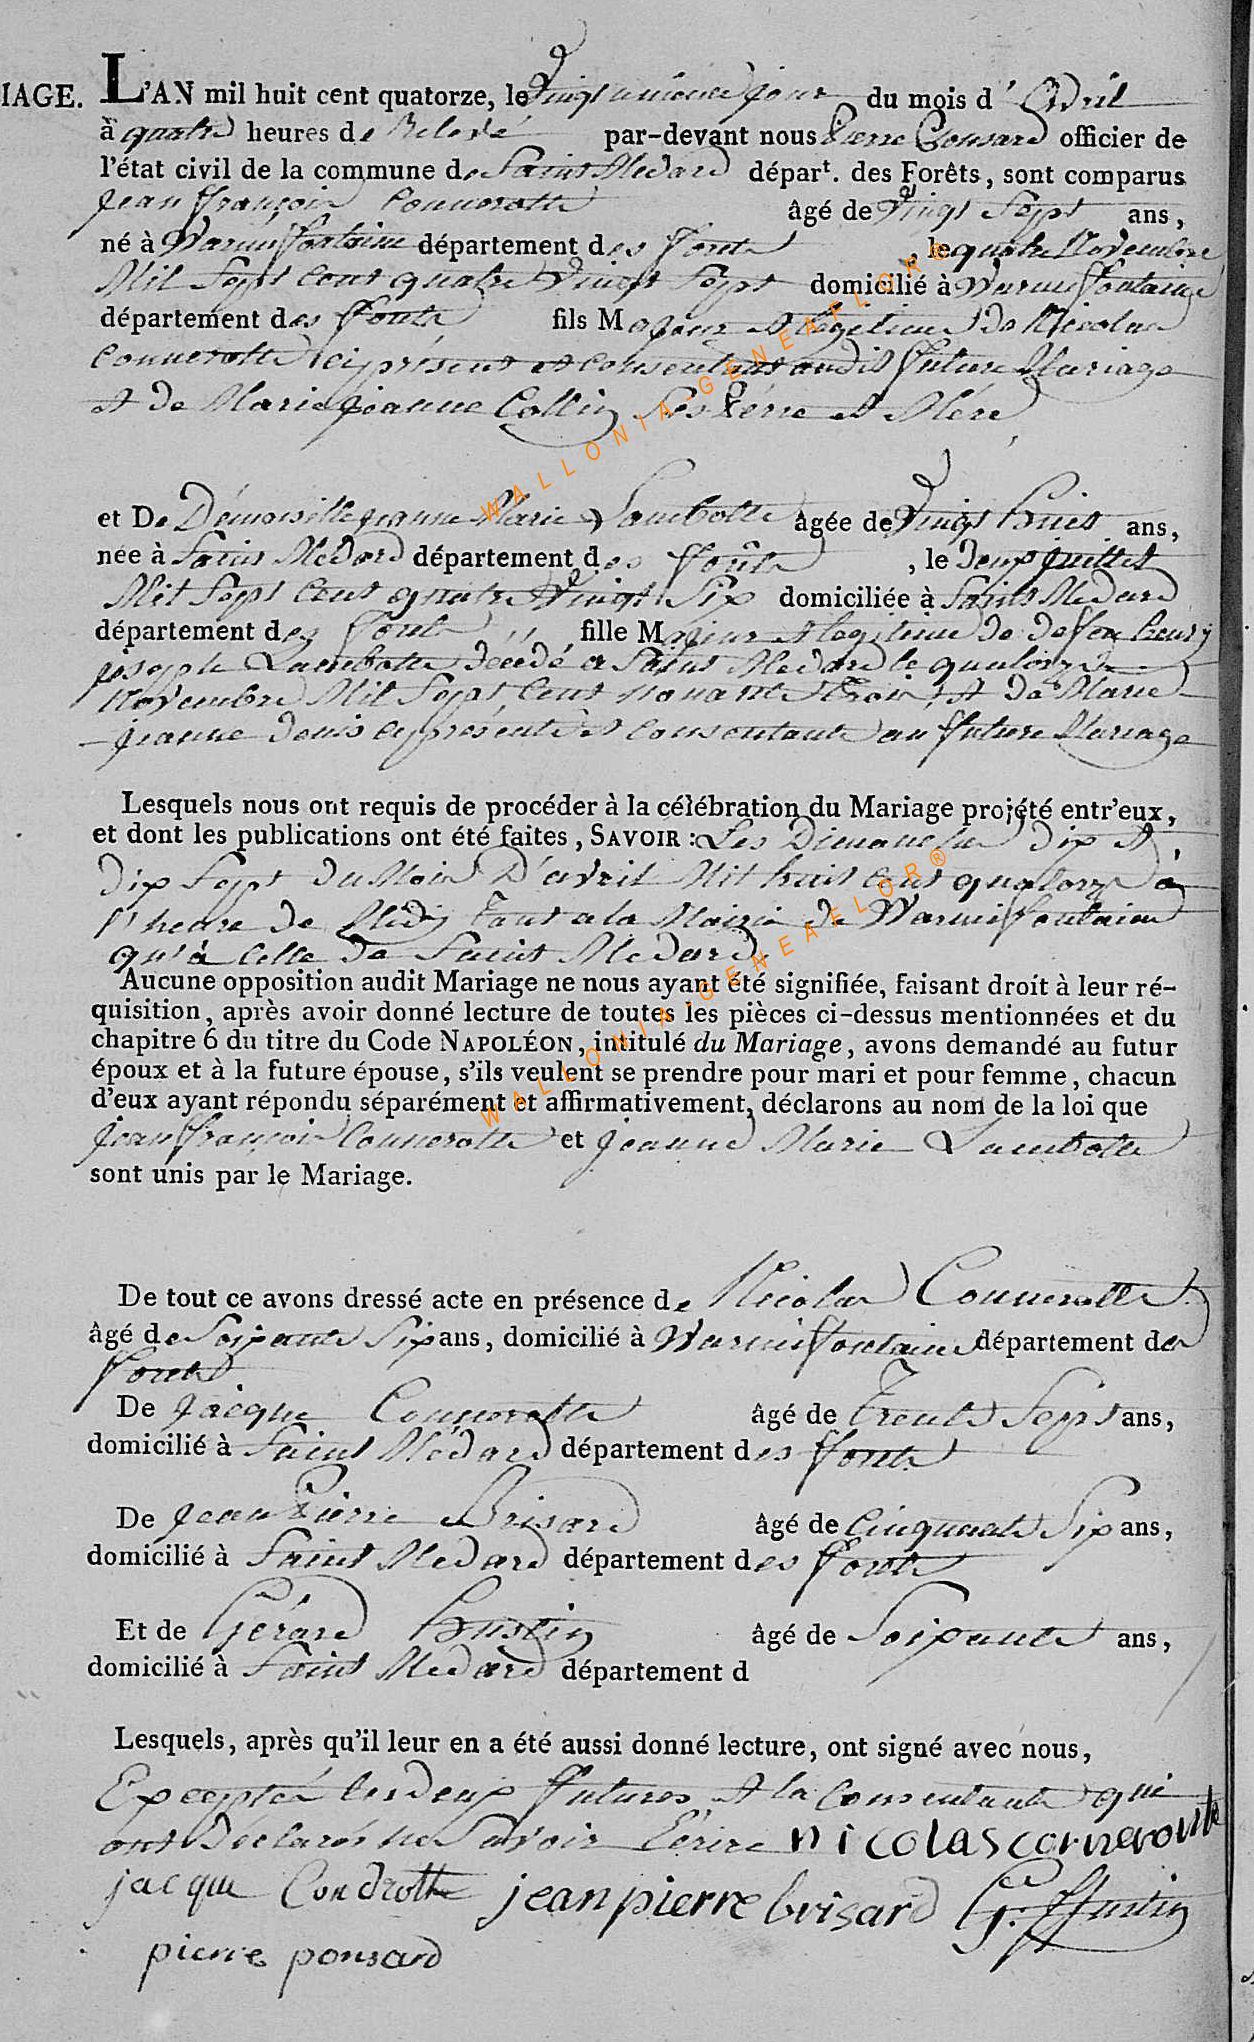 IAGE. L'AN mil huit cent quatorze, le Vingt unieme jour du mois d' Avril
à quatre heures de Relevé par-devant nous Pierre Ponsard officier de
l'état civil de la commune de Saint Medard départ. des Forêts, sont comparus
Jean François Connerotte âgé de Vingt Sept ans,
né à Warmifontaine département des Foret, le quatre Novembre
Mil Sept Cent quatre Vingt Sept domicilié à Warmifontaine
département des Foret fils Majeur et legitime de Nicolas
Connerotte ici présent et consentant audit future Mariage
et de Marie jeanne Collin Ses Pérre et Mére
et De Démoiselle jeanne Marie Lambotte âgée de Vingt huit ans,
née à Saint Medard département des Forêt, le deux juillet
Mil Sept Cent quatre Vingt Six domiciliée à Saint Medard
département des Foret fille Majeur et legitime de deffou henry
joseph Lambotte décédé a Saint Medard le quatorze
Novembre Mil Sept Cent nonante Trois, et de Marie
jeanne denis ci présente et consentante au future Mariage
Lesquels nous ont requis de procéder à la célébration du Mariage projété entr'eux,
et dont les publications ont été faites, SAVOIR : Les Dimanche dix et
dix Sept du Mois D'avril Mil huit Cent quatorze à
l'heure de Midy Tant a la Mairie de Warmifontaine
qu'à Celle de Saint Medard.
Aucune opposition audit Mariage ne nous ayant été signifiée, faisant droit à leur ré-
quisition, après avoir donné lecture de toutes les pièces ci-dessus mentionnées et du
chapitre 6 du titre du Code NAPOLÉON, intitulé du Mariage, avons demandé au futur
époux et à la future épouse, s'ils veulent se prendre pour mari et pour femme, chacun
d'eux ayant répondu séparément et affirmativement, déclarons au nom de la loi que
jean françois Connerotte et jeanne Marie Lambotte
sont unis par le Mariage.
De tout ce avons dressé acte en présence de Nicolas Connerotte
âgé de Soixante Six ans, domicilié à Warmifontaine département des
Foret
De jacque Connerotte âgé de Trente Sept ans,
domicilié à Saint Médard département des Foret
De jean Pierre Brisard âgé de Cinquante Six ans,
domicilié à Saint Medard département des Foret
Et de Gérard Hustin âgé de Soixante ans,
domicilié à Saint Medard département d
Lesquels, après qu'il leur en a été aussi donné lecture, ont signé avec nous,
Excepté les deux futures et la Consentante qui
ont Déclarés ne Savoir Ecrire nicolas connerotte
jacque Condrotte jean pierre brisard G. Hustin
pierre ponsard
WALLONIA-GENEAFLOR®
WALLONIA-GENEAFLOR®